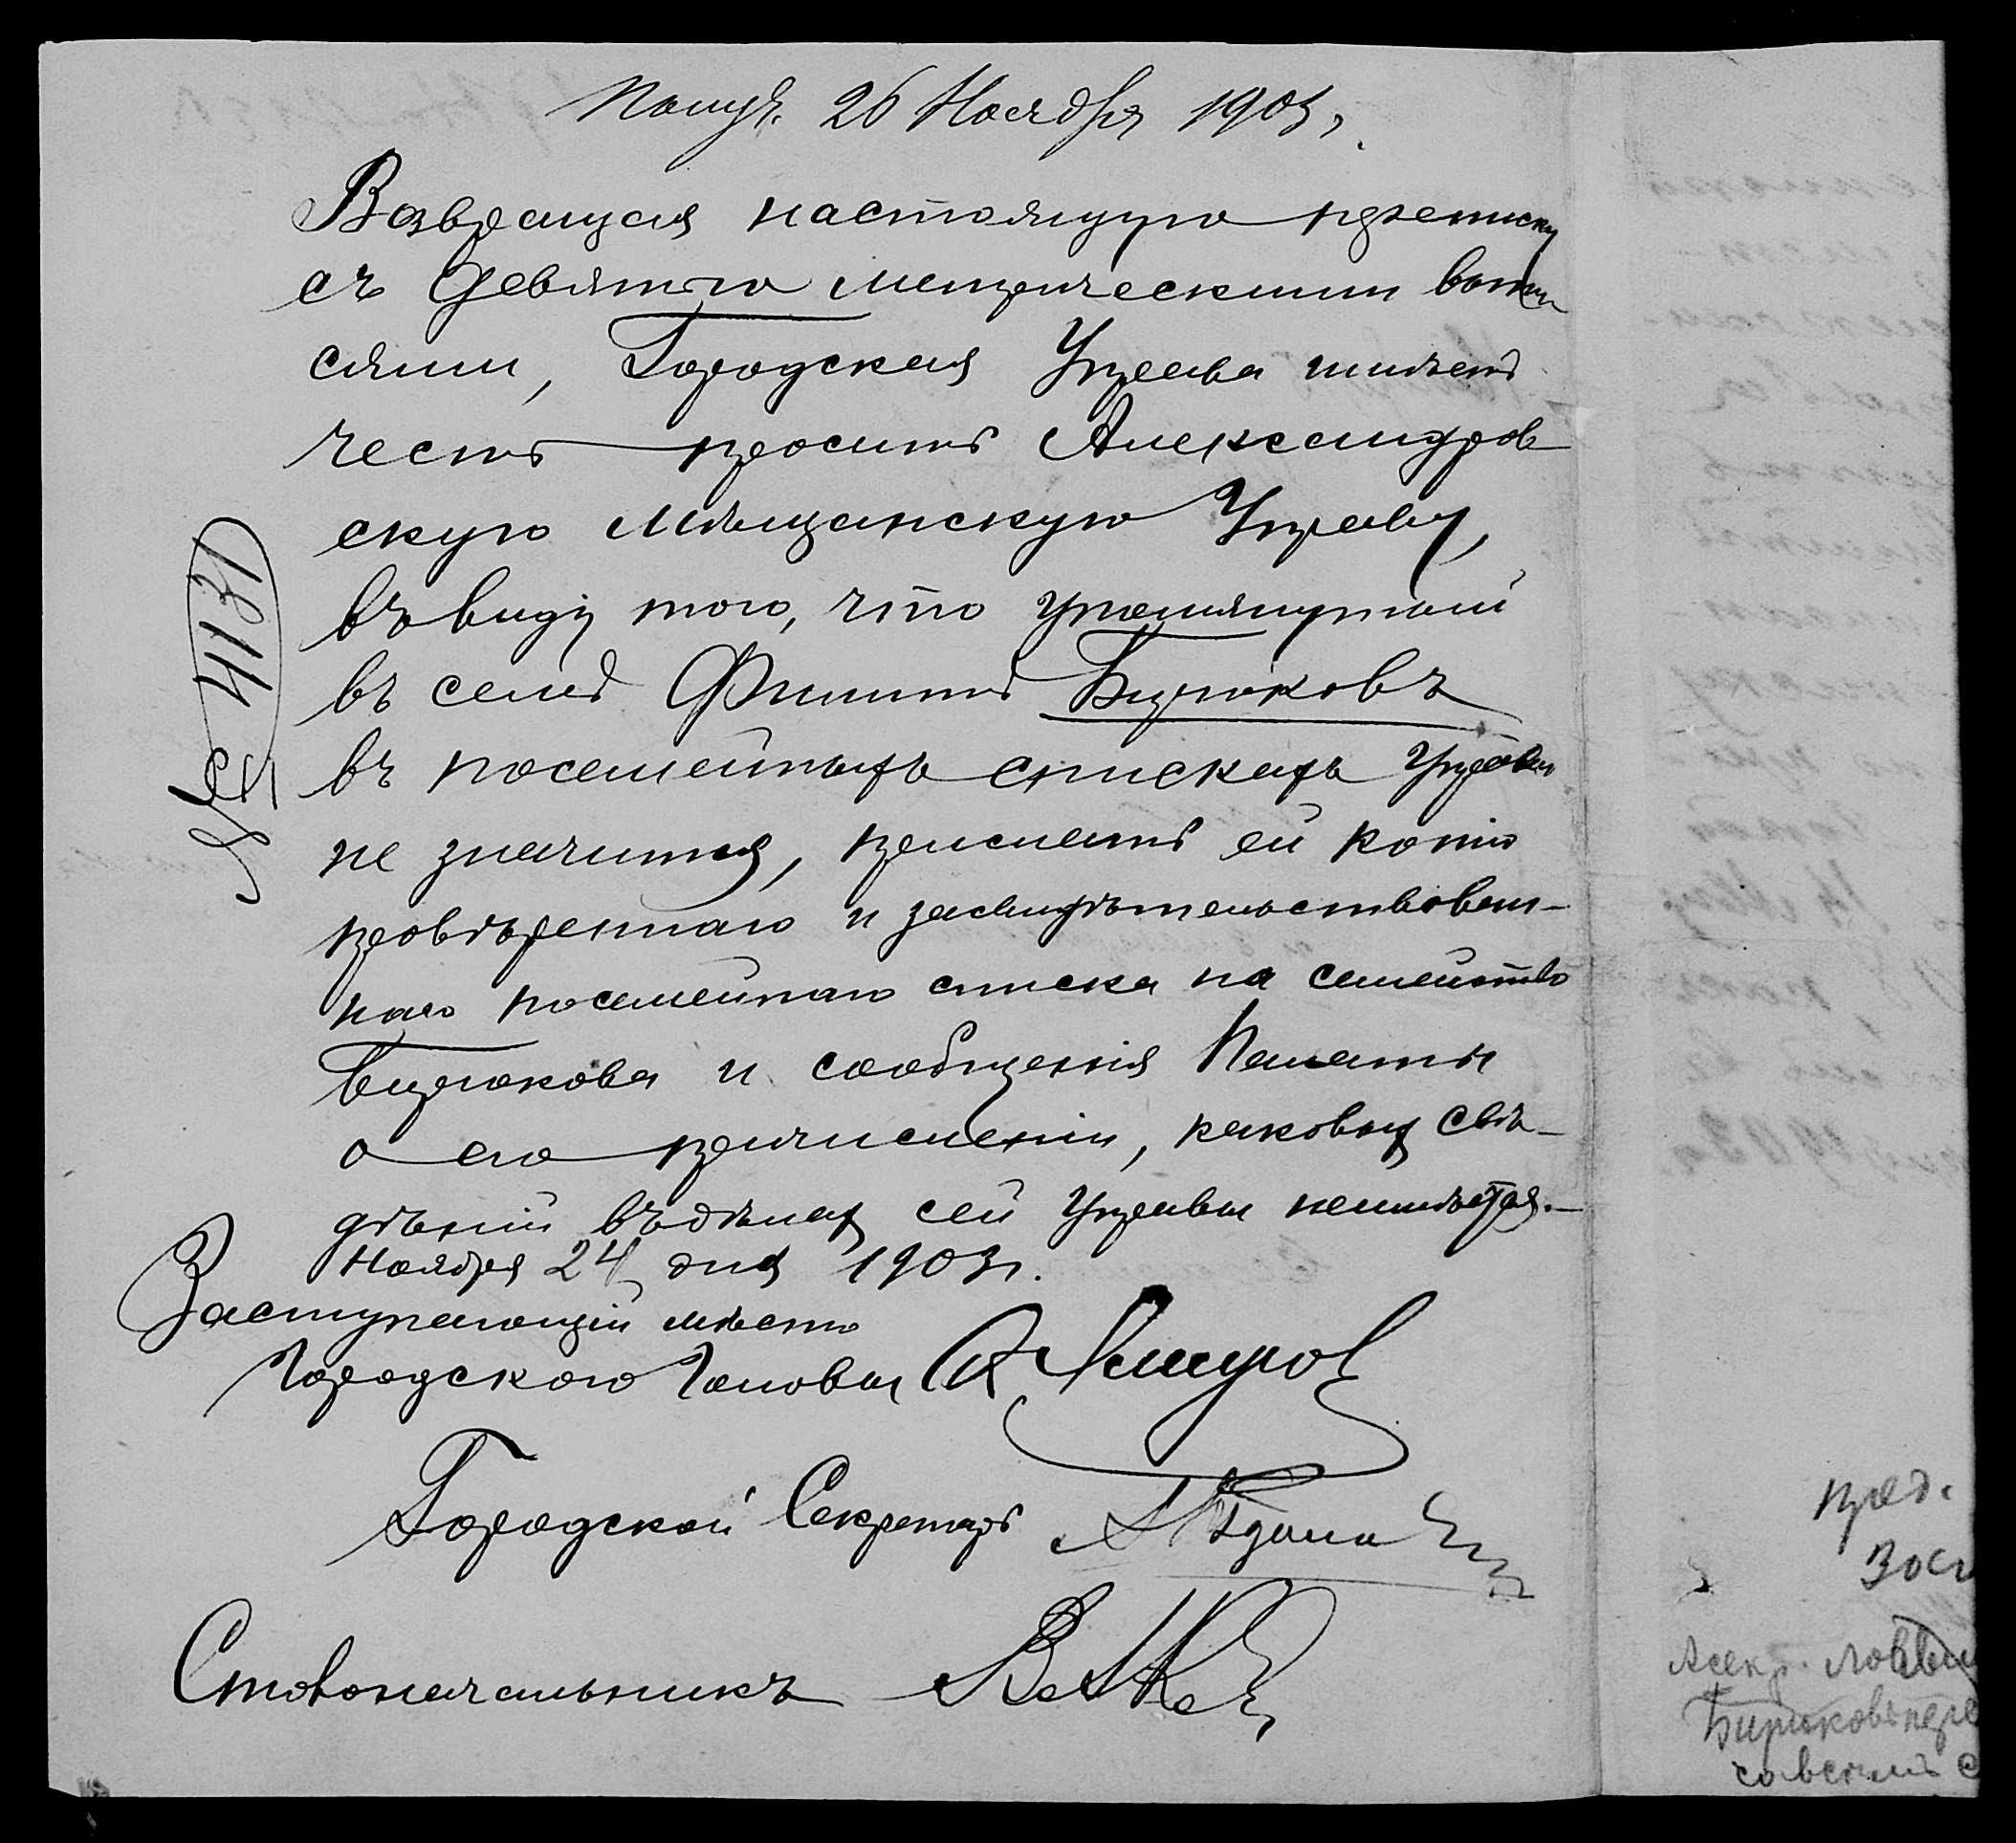 Получ. 26 Ноября 1903 г.
Возвращая настоящую переписку
съ девятью метрическими выпи
сями, Городская Управа имѣетъ
честь просить Александров
скую Мѣщанскую Управу,
въ виду того, что упомянутый
въ семъ Филиппъ Бирюковъ
въ посемейныхъ спискахъ Управы
не значится, прислать ей копію
провѣреннаго и засвидѣтельствован-
наго посемейнаго списка на семейство
Бирюкова и сообщенія Палаты
о его причисленіи, каковыхъ свѣ-
дѣній въ дѣлахъ сей Управы неимѣется.
Ноября 24 дня 1903 г.
Заступающій мѣсто
Городского Головы
Городской Секретарь
Столоначальникъ
№ 4131
Бирюковъ